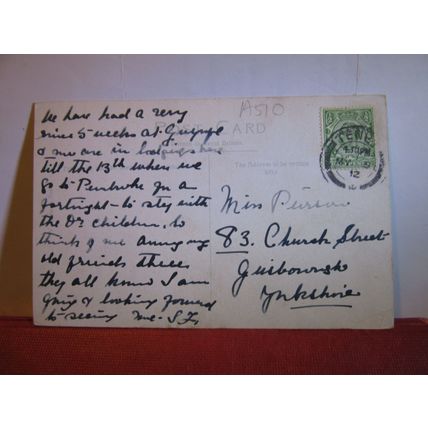 A510
POST CARD
The Address to be written
We have had a very
nice 5 weeks at
& we are in lodgings here
till the 13th when we
go to Pembroke for a
fortnight to stay with
the Dr Children, to
think of me among my
old friends there
they all know I am
going & looking forward
to seeing me - S.F.
Miss Pierson
83. Church Street
Guisborough
Yorkshire
TENBY
MY
12